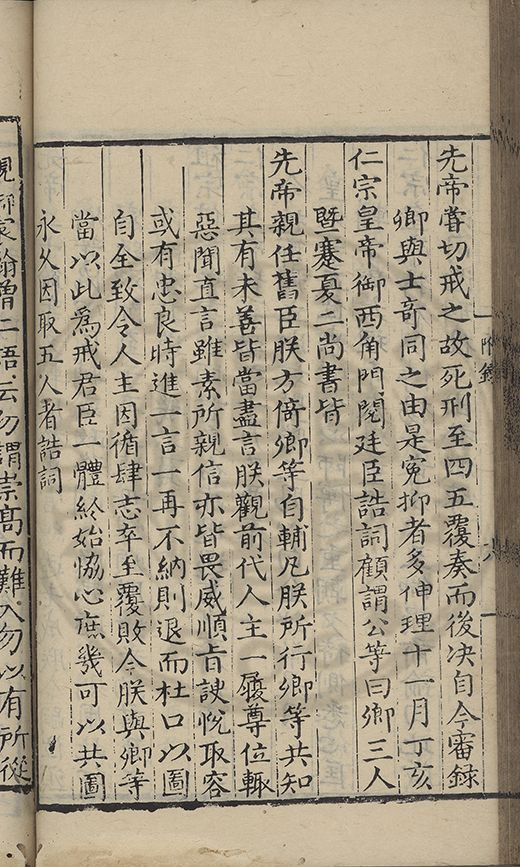 先帝嘗切戒之故死刑至四五覆奏而後決自今審録
卿與士奇同之由是寃抑者多伸理十一月丁亥
仁宗皇帝御西角門閱廷臣誥詞顧謂公等曰卿三人
曁蹇夏二尚書皆
先帝親任舊臣朕方倚卿等自輔凡朕所行卿等共知
其有未善皆當盡言朕觀前代人主一履尊位輙
惡聞直言雖素所親信亦皆畏威順㫖諛悅取容
或有忠良時進一言一再不納則退而杜口以圖
自全致令人主因循肆志卒至覆敗今朕與卿等
當以此爲戒君臣一體終始恊心庶幾可以共圖
永久因取五人者誥詞
親御宸翰增二語云勿謂崇髙而難入勿以有所從
附錄